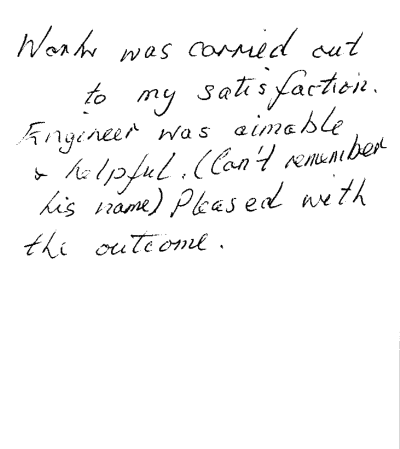 Work was carried out
to my satisfaction.
Engineer was aimable
& helpful. (Can't remember
his name) Pleased with
the outcome.